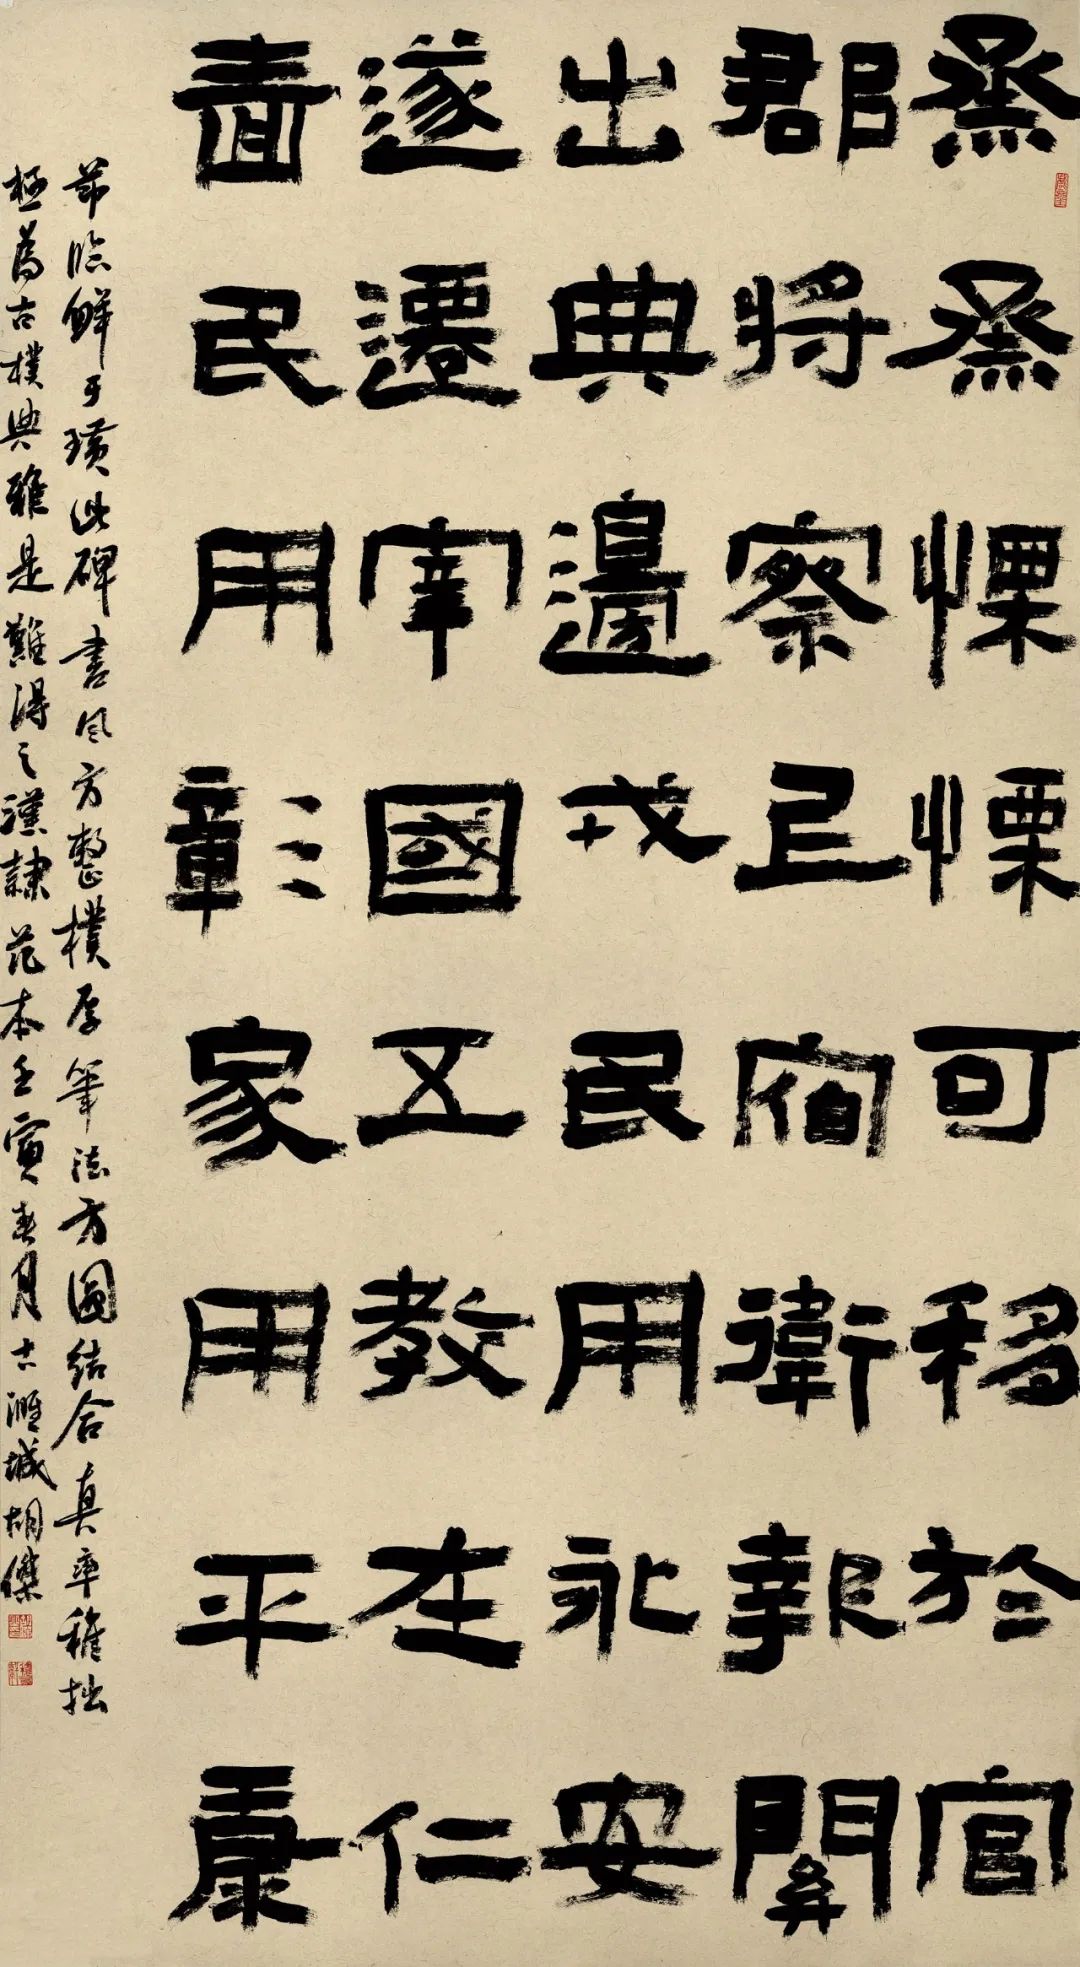 烝烝慄慄可移於官
郡將察已宿衛報關
出典邊戎民用永安
遂遷宰國五教在仁
嗇民用彰家用平康
節臨鮮于璜此碑書風方整樸厚筆法方圓結合真率稚拙
極為古樸典雅是難得之漢隸范本壬寅春月古濰城胡傑